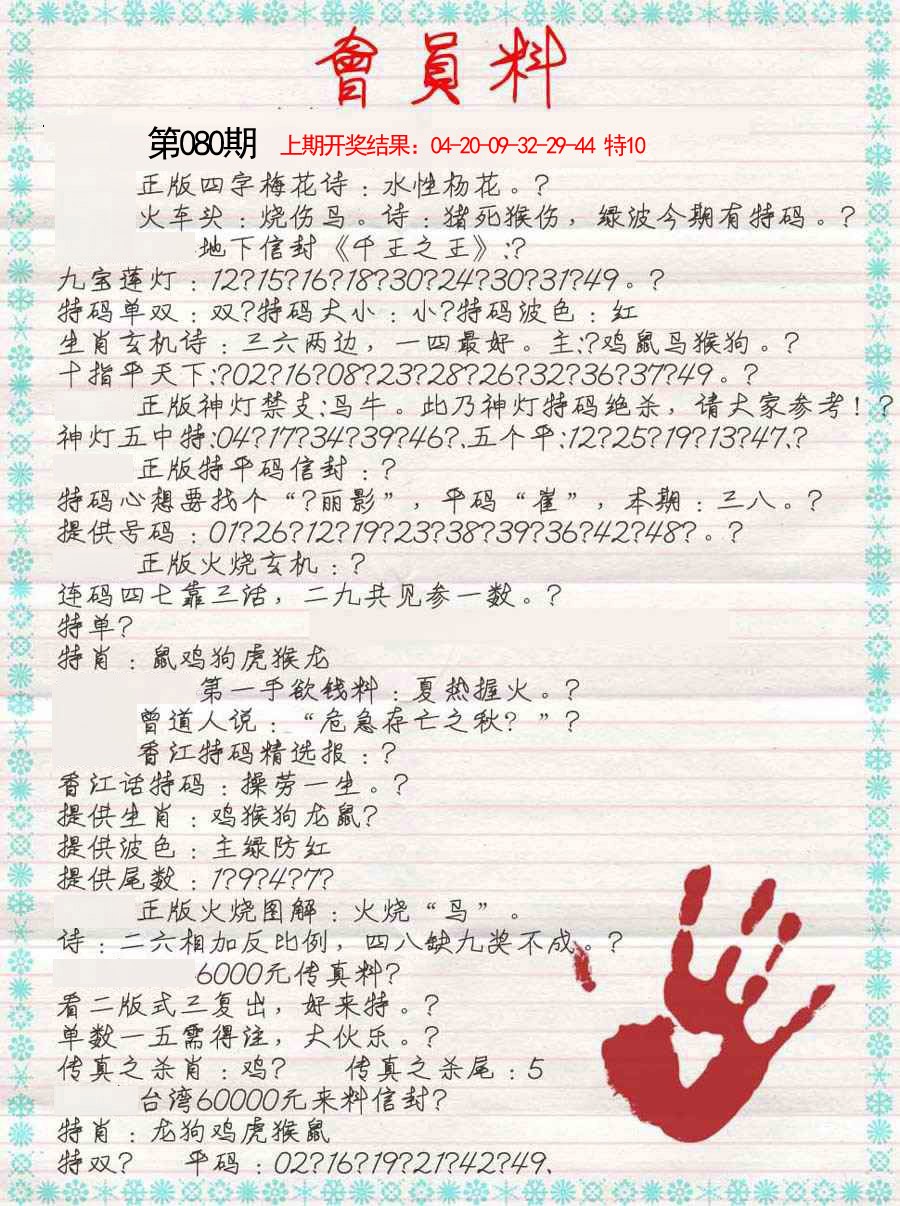 會員料
第080期 上期开奖结果：04-20-09-32-29-44 特10
正版四字梅花诗：水性杨花。?
火车头：烧伤鸟。诗：猪死猴伤，绿波今期有特码。?
地下信封《千王之王》:?
九宝莲灯：12?15?16?18?30?24?30?31?49。?
特码单双：双?特码大小：小?特码波色：红
生肖玄机诗：三六两边，一四最好。主:?鸡鼠马猴狗。?
十指平天下:?02?16?08?23?28?26?32?36?37?49。?
正版神灯禁支:马牛。此乃神灯特码绝杀，请大家参考！?
神灯五中特:04?17?34?39?46?、五个平:12?25?19?13?47、?
正版特平码信封：?
特码心想要找个“?丽影”，平码“崔”，本期：三八。?
提供号码：01?26?12?19?23?38?39?36?42?48?。?
正版火烧玄机：?
连码四七靠三话，二九共见参一数。?
特单?
特肖：鼠鸡狗虎猴龙
第一手欲钱料：夏热握火。?
曾道人说：“危急存亡之秋？”?
香江特码精选报：?
香江话特码：操劳一生。?
提供生肖：鸡猴狗龙鼠?
提供波色：主绿防红
提供尾数：1?9?4?7?
正版火烧图解：火烧“鸟”。
诗：二六相加反比例，四八缺九奖不成。?
6000元传真料?
看二版式三复出，好来特。?
单数一五需得注，大伙乐。?
传真之杀肖：鸡? 传真之杀尾：5
台湾60000元来料信封?
特肖：龙狗鸡虎猴鼠
特双? 平码：02?16?19?21?42?49、